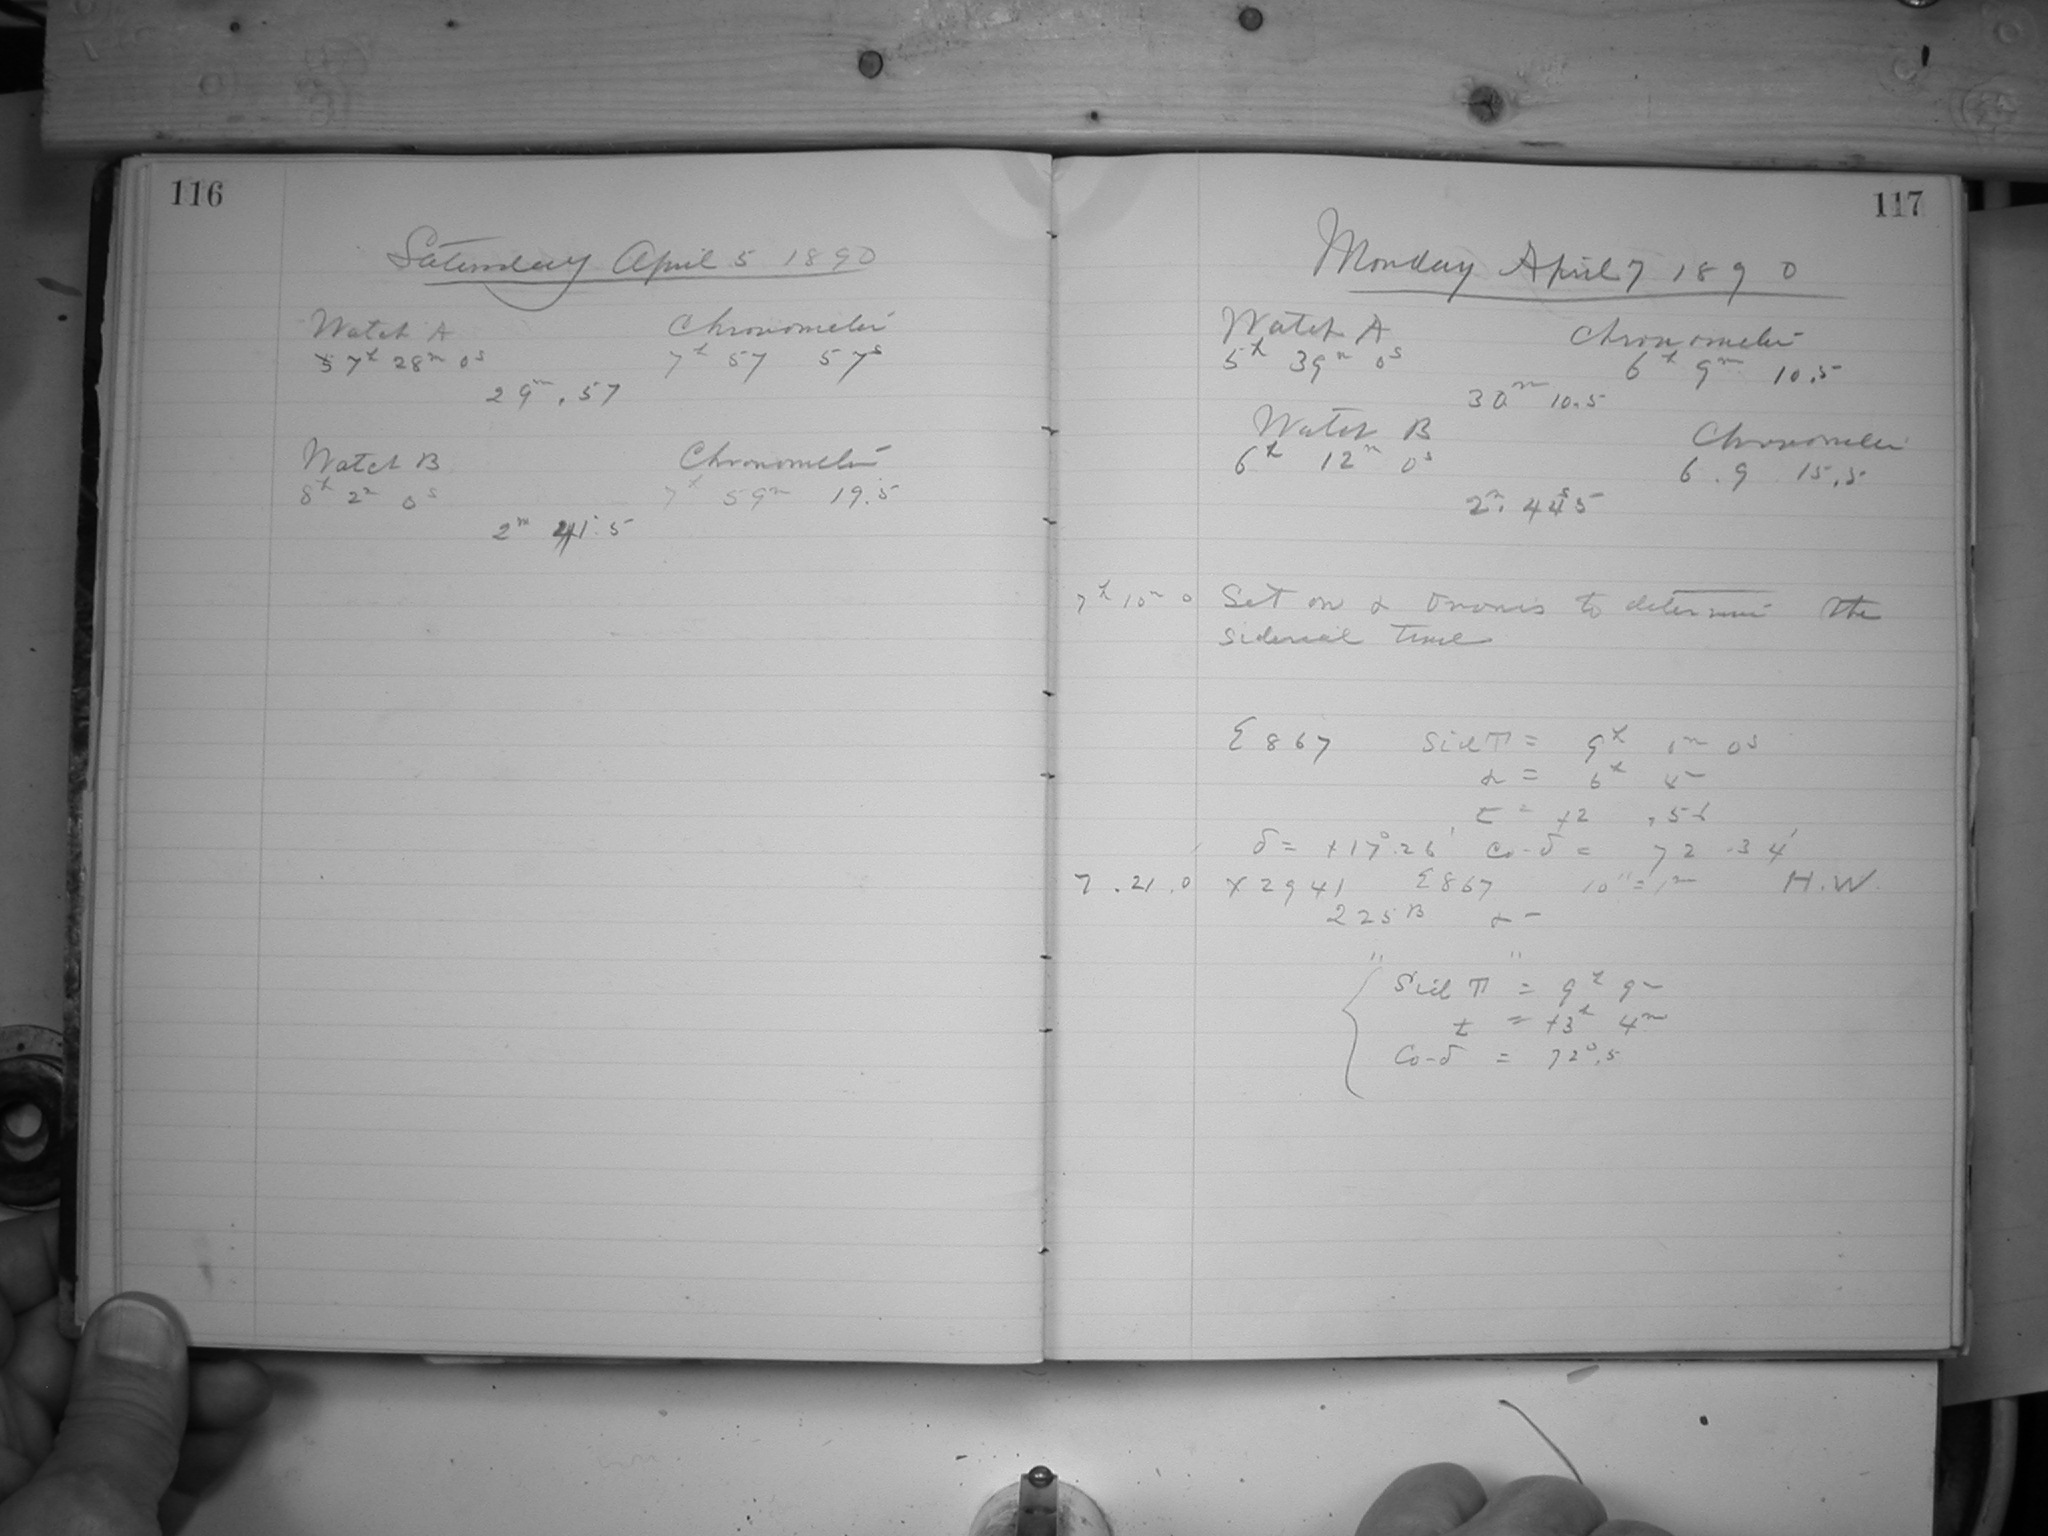 116
Saturday April 5 1890
Watch A Chronometer
7h 28m 0s 7h 57 57s
29m.57
Watch B Chronometer
8h 2m 0s 7h 59m 19.5
2m 41.5
117
Monday April 7 1890
Watch A Chronometer
5h 39m 0s 6h 9m 10.5
30m 10.5
Watch B Chronometer
6h 12m 0s 6.9 15.5
2m. 44s5
7h 10m 0 Set on α Orionis to determine the
sidereal time
Σ 867 Sid T = 9h 1m 0s
α = 6h 5m
t = +2 .56
δ = +17°.26' Co-δ = 72.34'
7.21.0 X2941 Σ867 10" = 1m H.W.
225B α -
" "
Sid T = 9h 9m
t = +3h 4m
Co-δ = 72°.5